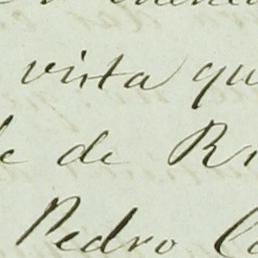 vista qu
de de Ri
Pedro Ca